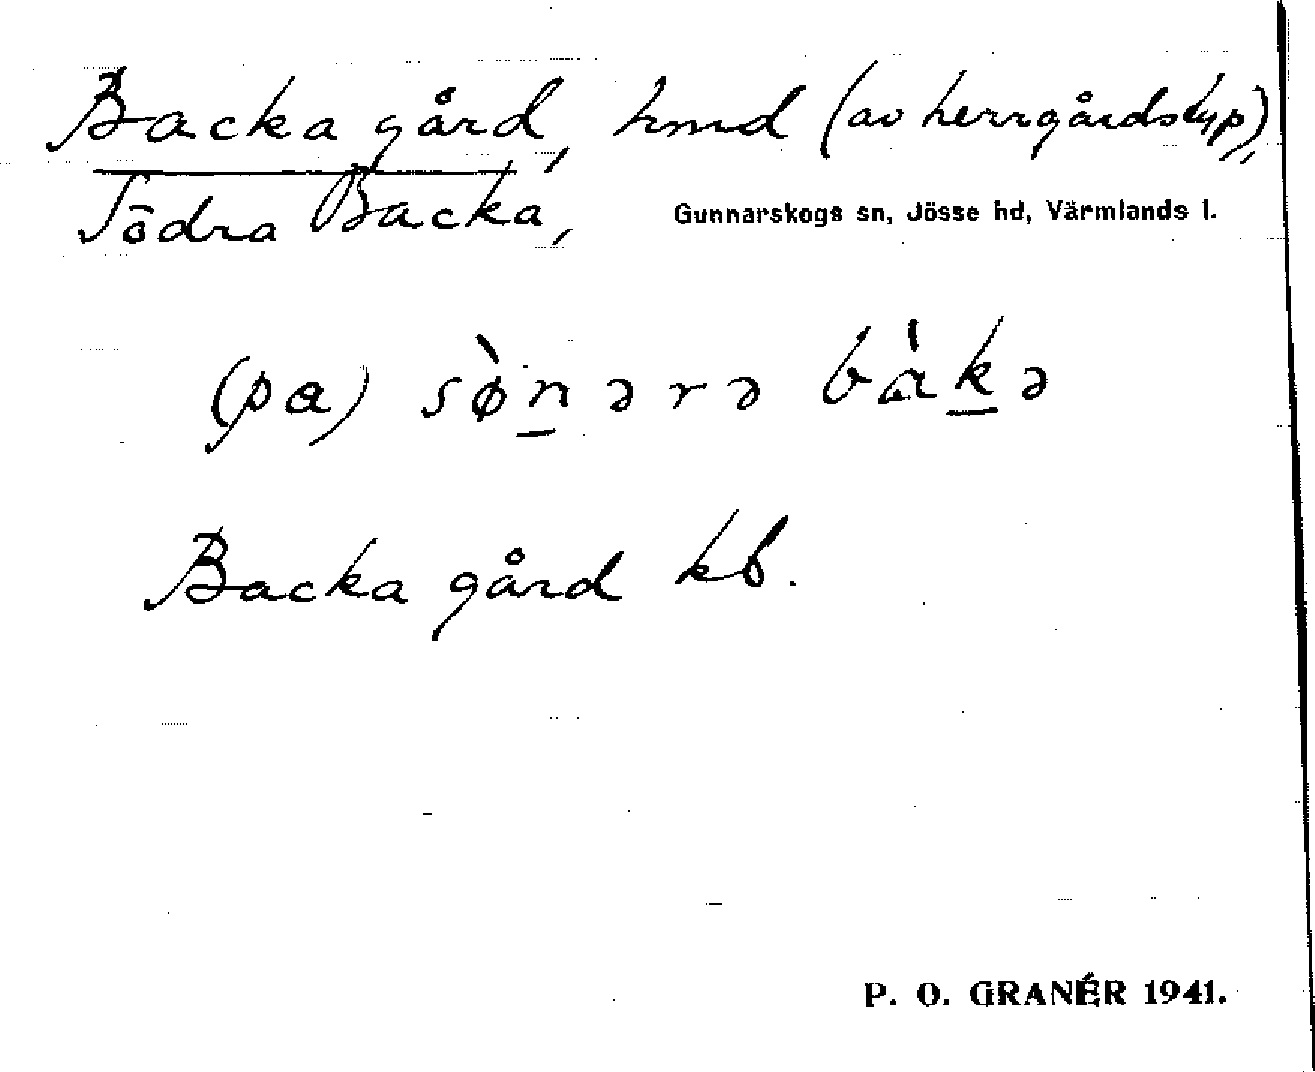 Backa gård, hmd (av herrgårdstyp),
Södra Backa,
Gunnarskogs sn, Jösse hd, Värmlands l.
(pa) sø̀n̲ərə bàk̲ə
Backa gård kb.
P. O. GRANÉR 1941.